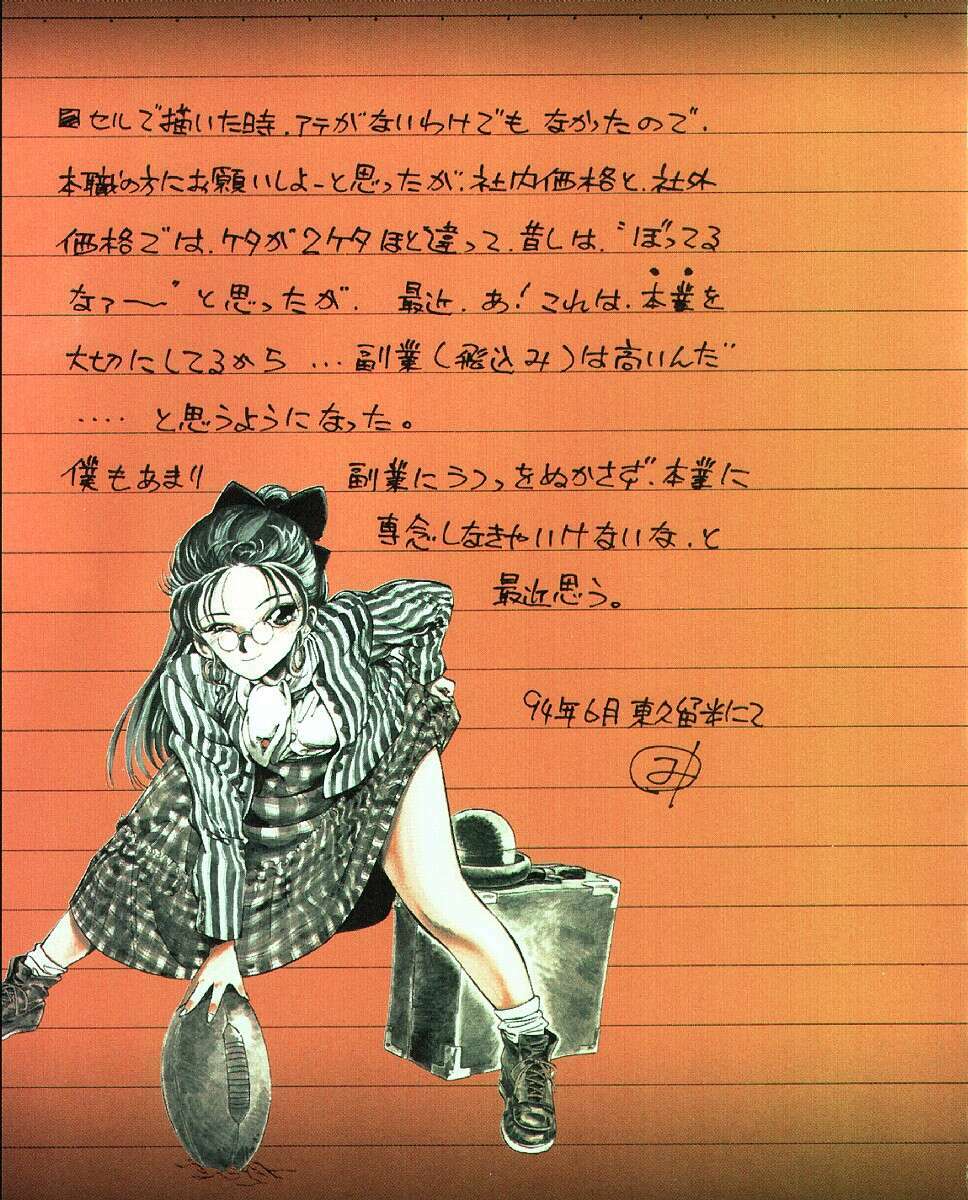 セルで描いた時、アテがないわけでもなかったので、
本職の方にお願いしよーと思ったが、社内価格と、社外
価格では、ケタが2ケタほど違って、昔しは、〝ぼってる
なァ〜〟と思ったが、最近、あ!これは、本業を
大切にしてるから…副業(飛込み)は高いんだ
‥‥と思うようになった。
僕もあまり副業にうつつをぬかさず、本業に
専念しなきゃいけないな、と
最近思う。
94年6月東久留米にて
み